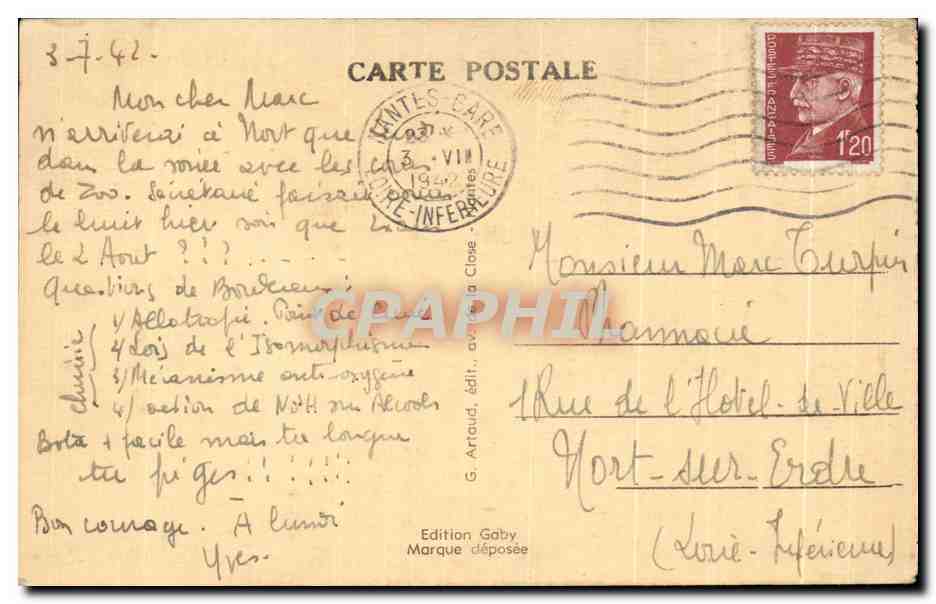 3-7-42-
CARTE POSTALE
Mon cher Marc
n'arriverai à Nort que
dans la soirée avec les
de Zoo. Secrétaire faisait
le bruit hier soir que
le 2 Aout ? ! ? .....
Questions de Bordeaux :
chimie
1/ Allotropie. Point de
2/ Lois de l'Isomorphisme
3/ Mécanisme anti-oxygène
4/ action de NO3H sur Alcools
Bota + facile mais tu longue
tu piges ! ! ! ! ! ! !
Bon courage. À lundi
Yves-
NANTES-GARE
3 VII
1942
LOIRE-INFERIEURE
POSTES FRANCAISES
1F20
G. Artaud, édit., av. de la Close - Nantes
Monsieur Marc Turpin
Pharmacie
1 Rue de l'Hotel-de-Ville
Nort-sur-Erdre
(Loire-Inférieure)
Edition Gaby
Marque déposée
CPAPHIL